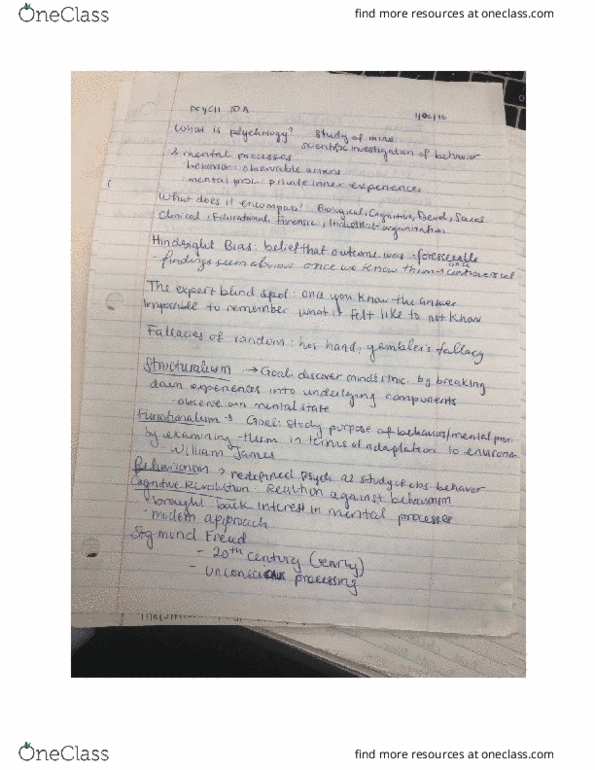 OneClass
find more resources at oneclass.com
PSYCH 10A
What is psychology? Study of mind
scientific investigation of behavior
& mental processes
- behavior: observable actions
- mental proc: private inner experiences
What does it encompass? Biological, Cognitive, Devel, Social
Clinical, Educational, Forensic, Industrial-organization
Hindsight Bias: belief that outcome was foreseeable
- findings seem obvious once we know them → can be controversial
The expert blind spot: once you know the answer
impossible to remember what it felt like to not know
Fallacies of random: hot hand, gambler's fallacy
Structuralism → Goal: discover minds struc. by breaking
down experiences into underlying components
- observe own mental state
Functionalism → Goal: Study purpose of behavior/mental proc
by examining them in terms of adaptation to environ.
- William James
Behaviorism → redefined psych as study of obs behavior
Cognitive Revolution: Reaction against behaviorism
- brought back interest in mental processes
- modern approach
Sigmund Freud
- 20th century (early)
- unconscious processing
OneClass
find more resources at oneclass.com